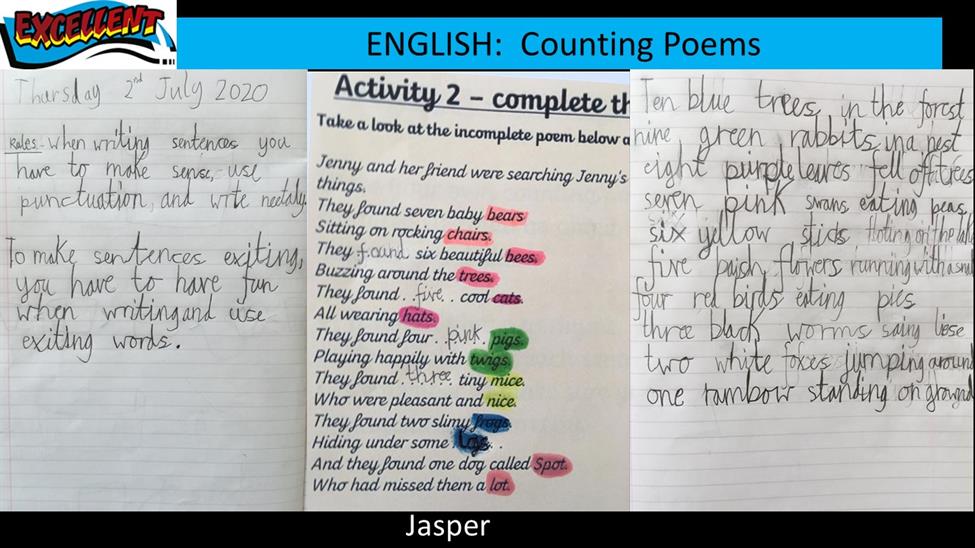 EXCELLENT
ENGLISH: Counting Poems
Thursday 2nd July 2020
Rules- When writing sentences you
have to make sense, use
punctuation, and write neetaly
To make sentences exiting,
you have to have fun
when writing and use
exiting words.
Activity 2 – complete th
Take a look at the incomplete poem below a
Jenny and her friend were searching Jenny's
things.
They found seven baby bears
Sitting on rocking chairs.
They found six beautiful bees.
Buzzing around the trees.
They found. five. . cool cats.
All wearing hats.
They found four. pink. pigs.
Playing happily with twigs.
They found. three tiny mice.
Who were pleasant and nice.
They found two slimy frogs.
Hiding under some logs. .
And they found one dog called Spot.
Who had missed them a lot.
Ten blue trees, in the forest
nine green rabbits, in a pest
eight purple leaves fell off trees
seven pink swans eating peas
six yellow floting on the
five flowers running with a
four red birds eating pies
three black worms
two white foxes jumping around
one standing on
Jasper